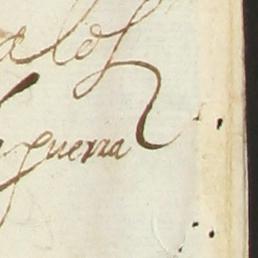 a los
guerra